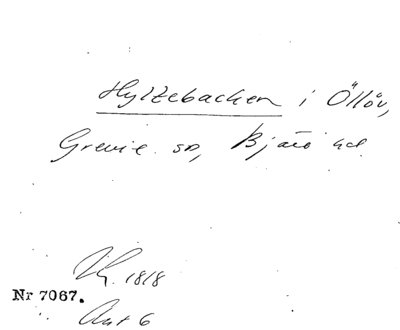 Hyltebacken i Öllöv,
Grevie sn, Bjäre hd.
1818
Nr 7067.
Akt 6